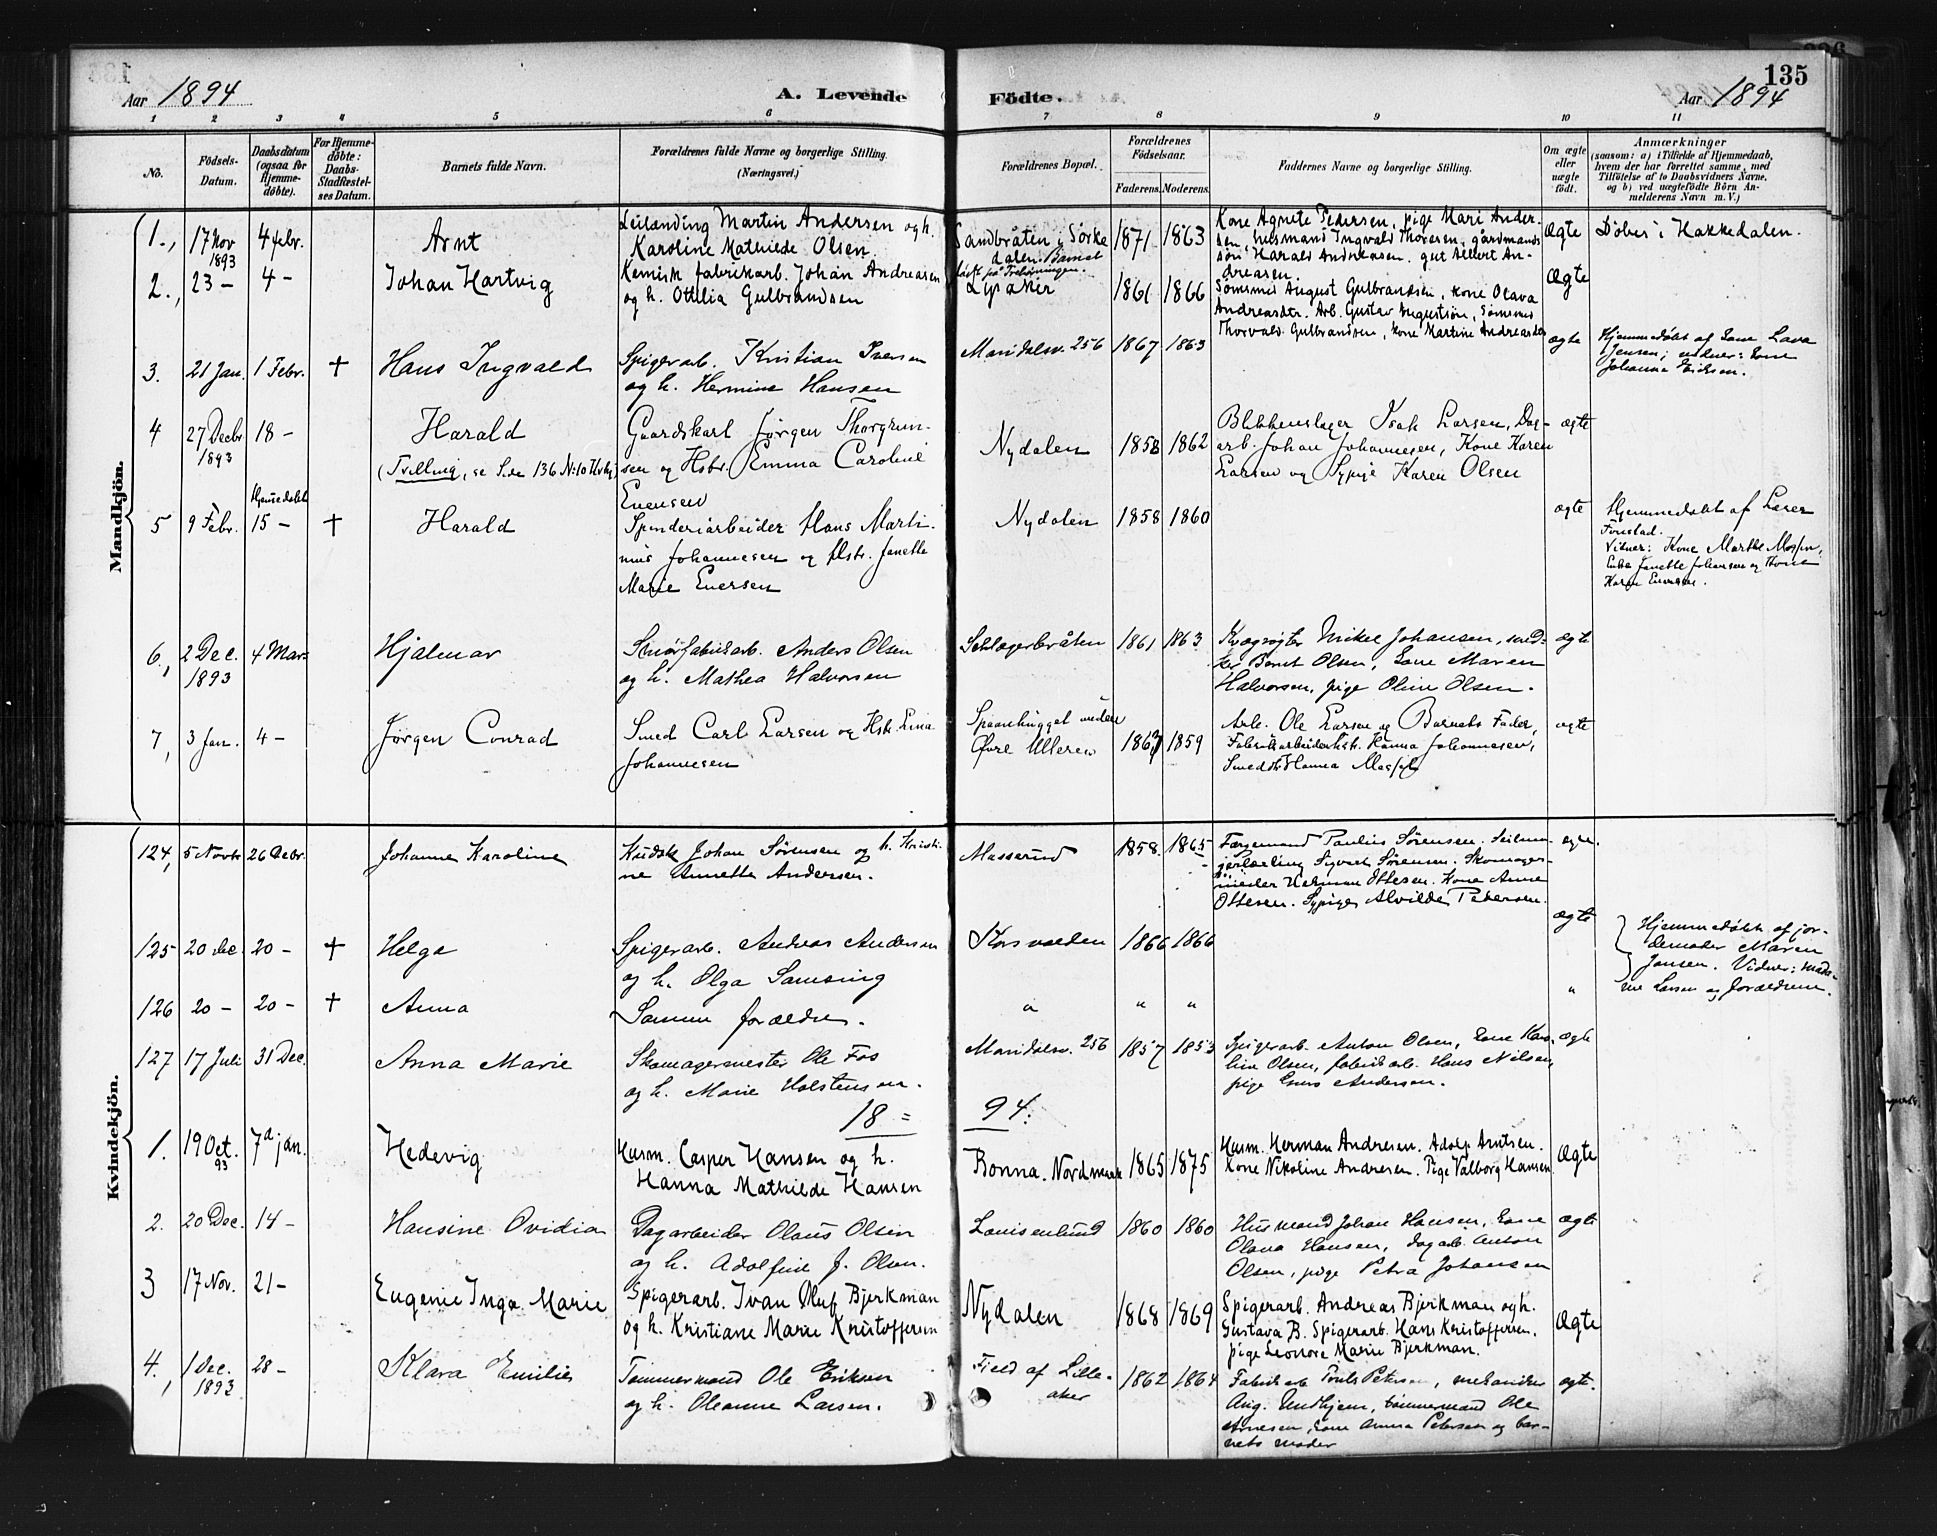 135
Aar 1894
A. Levende
Födte.
Aar 1894
1 2 3 4 5 6 7 8 9 10 11
No.
Födsels-
Datum.
Daabsdatum
(ogsaa for
Hjemme-
döbte).
For Hjemme-
döbte:
Daabs-
Stadfæstel-
ses Datum.
Barnets fulde Navn.
Forældrenes fulde Navne og borgerlige Stilling.
(Næringsvei.)
Forældrenes Bopæl.
Forældrenes
Födselsaar.
Faderens. Moderens.
Faddernes Navne og borgerlige Stilling.
Om ægte
eller
uægte
födt.
Anmærkninger
(saasom: a) i Tilfælde af Hjemmedaab,
hvem der har forrettet samme, med
Tilföielse af to Daabsvidners Navne,
og b) ved uægtefödte Börn An-
melderens Navn m. V.)
Mandkjön.
1., 17 Nov 1893 4 febr. Arnt
Leilænding Martin Andersen og h.
Karoline Mathilde Olsen.
Sandbråten i Sørke
dalen. Barnet
født på
1871 1863
Kone Agnete Pedersen, pige Mari Ander-
sen, husmand Ingvald Thoresen, gårdmands
søn Harald Andreasen, gut Albert An-
dreasen.
Ægte
Döbt i Hakkedalen.
2., 23 – 4 – Johan Hartvig
Kemisk fabrikarb. Johan Andreasen
og h. Ottilia Gulbrandsen
Lysaker
1861 1866
August Gulbrandsen, kone Olava
Andreasdtr. Arb. Gustav Augustsøn,
Thorvald Gulbrandsen, kone Martine Andreasdtr
Ægte
3. 21 Jan. 1 Febr. † Hans Ingvald
Spigerarb. Kristian Iversen
og h. Hermine Hansen
Maridalsv. 256 1867 1863
ægte
Hjemmedøbt af kone Lava
Jensen; vidner: kone
Johanna Eriksen.
4 27 Decbr 1893 18 – Harald
(Tvilling, se Side 136 No 10 Hvkj)
Gaardskarl Jørgen Thorgrim-
sen og Hstr. Emma Caroline
Evensen
Nydalen 1858 1862
Blikkenslager Isak Larsen, Dag-
arb. Johan Johannesen, Kone Karen
Larsen og Sypige Karen Olsen
ægte
5 9 Febr. Hjemmedøbt 15 – † Harald
Spinderiarbeider Hans Marti-
nius Johannesen og Hstr. Janette
Marie Evensen
Nydalen 1858 1860
ægte
Hjemmedøbt af Lærer
Finstad.
Vidner: Kone Marthe Moss,
Janette Johansen og Kone
Karen Evensen.
6, 2 Dec. 1893 4 Mar. Hjalmar
Smørfabrikarb. Anders Olsen
og h. Mathea Halvorsen
Schlagerbråten 1861 1863
Kvægrøgter Mikal Johansen, sned-
ker Bernt Olsen, kone Maren
Halvorsen, pige Oline Olsen.
ægte
7, 3 Jan. 4 – Jørgen Conrad
Smed Carl Larsen og Hstr. Lina
Johannesen
Spaanhugget under
Øvre Ulleren 1863 1859
Arb. Ole Larsen og Barnets Fader,
Fabrikarbeiderhstr. Hanna Johannesen,
Smedhstr. Hanna
ægte
Kvindekjön.
124, 5 Novbr 26 Decbr. Johanne Karoline
Kudsk Johan Sørensen og h. Kristi-
ne Annette Andersen.
Masserud 1858. 1865
Færgemand Paulius Sørensen. Seilma-
gerlærling Sigvart Sørensen. Skomager-
mester Herman Ottesen. Kone Anne
Ottesen. Sypige Alvilde Petersen.
ægte.
125 20 Dec. 20 – † Helga
Spigerarb. Andreas Andersen
og h. Olga Samsing
Korsvolden 1866 1866
ægte
Hjemmedøbt af jor-
demoder Maren
Jansen. Vidner: mada-
me Larsen og forældrene.
126 20 – 20 – † Anna
Samme forældre.
" " "
"
127 17 Juli 31 Dec. Anna Marie
Skomagermester Ole Fos
og h. Marie Holstensen.
Maridalsv. 256 1857 1853
Spigerarb. Anton Olsen, kone Karo-
line Olsen, fabrikarb. Hans Nilsen,
pige Andersen.
ægte
18 = 94.
1. 19 Oct. 93 7d jan. Hedevig
Husm. Casper Hansen og h.
Hanna Mathilde Hansen
Bonna. Nordmark 1865 1875
Husm. Herman Andresen. Adolf Arntsen.
Kone Nikoline Andresen. Pige Valborg Hansen
Ægte
2. 20 Dec. 14 – Hansine Ovidia
Dagarbeider Olaus Olsen
og h. Adolfine J. Olsen.
Louisenlund 1860 1860
Husmand Johan Hansen, kone
Olava Hansen, dagarb. Anton
Olsen, pige Petra Johansen
ægte
3 17 Nov. 21 – Eugenie Inga Marie
Spigerarb. Ivan Oluf Bjerkman
og h. Kristiane Marie Kristoffersen
Nydalen 1868 1869
Spigerarb. Andreas Bjerkman og h.
Gustava B. Spigerarb. Hans Kristoffersen.
pige Leonore Marie Bjerkman.
Ægte
4., 1 Dec. 1893 28 – Klara Emilie
Tømmermand Ole Eriksen
og h. Oleanne Larsen.
Field af Lille-
aker 1862 1864
Fabrikarb. Petersen,
Aug. Undhjem, tømmermand Ole
Arnesen, kone Anna Petersen og bar-
nets moder
ægte.